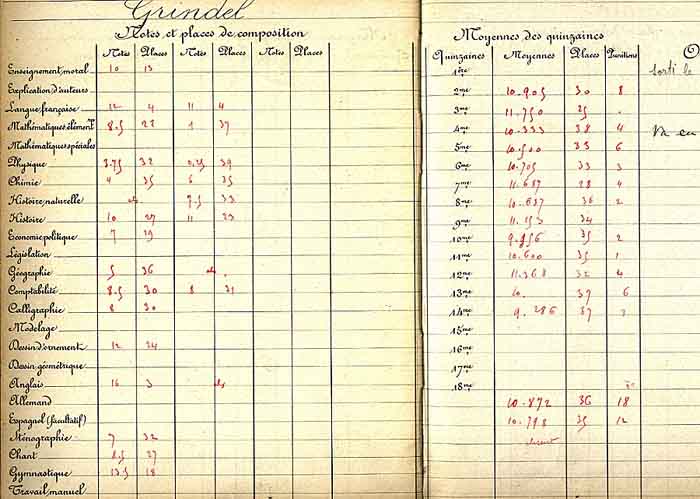 Grindel
Notes et places de composition
Notes Places Notes Places Notes Places
Enseignement moral 10 13
Explication d'auteurs
Langue française 12 4 11 4
Mathématiques élément 8.5 22 1 37
Mathématiques spéciales
Physique 3.75 32 0.25 39
Chimie 4 35 6 35
Histoire naturelle 9.5 33
Histoire 10 27 11 23
Economie politique 7 29
Législation
Géographie 5 36
Comptabilité 8.5 30 8 31
Calligraphie 8 30
Modelage
Dessin d'ornement 12 24
Dessin géométrique
Anglais 16 3
Allemand
Espagnol (facultatif)
Sténographie 7 32
Chant 8.5 27
Gymnastique 13.5 18
Travail manuel
Moyennes des quinzaines
Quinzaines Moyennes Places Punitions
1ère sorti le
2me 10.905 30 8
3me 11.750 25
4me 10.333 38 4
5me 10.500 33 6
6me 10.705 33 3
7me 11.687 28 4
8me 10.637 36 2
9me 11.153 34
10me 9.956 35 2
11me 10.600 35 1
12me 11.368 32 4
13me 10. 37 6
14me 9.286 37
15me
16me
17me
18me
10.872 36 18
10.798 35 12